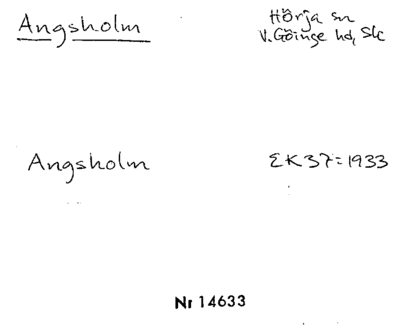 Angsholm
Hörja sn
V. Göinge hd, Slc
Angsholm
EK 37: 1933
Nr 14633